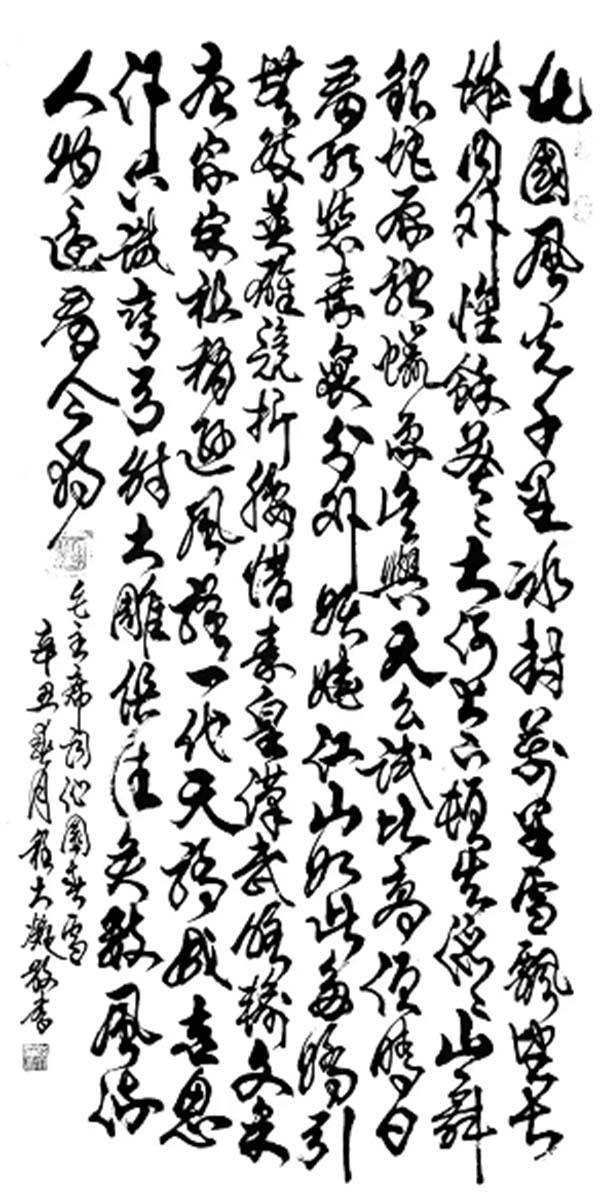 北國風光千里冰封萬里雪飄望長
城内外惟餘莽々大河上下頓失滔々山舞
銀蛇原馳蠟象欲與天公試比高須晴日
看紅裝素裹分外妖嬈江山如此多嬌引
無數英雄競折腰惜秦皇漢武略輸文采
唐宗宋祖稍遜風騷一代天驕成吉思
汗只識彎弓射大雕俱往矣數風流
人物還看今朝
毛主席詞沁園春雪
辛丑春月程大凝敬書